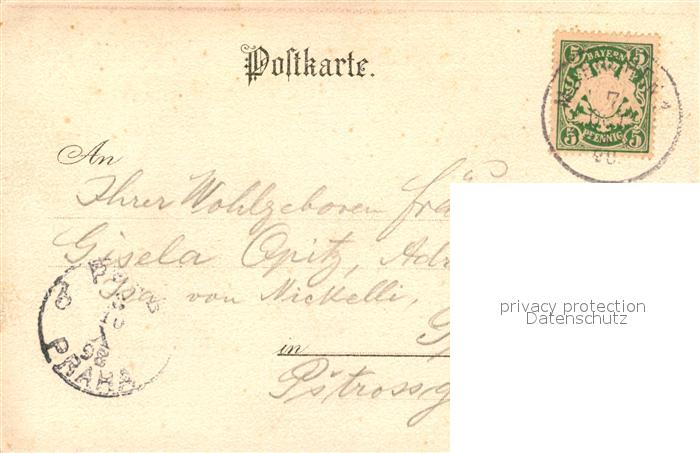 Postkarte.
5 BAYERN 5
5 PFENNIG 5
7
An
Ihrer Wohlgeboren Frä
Gisela Opitz, Adr
von Nickelli,
in
Pstrossg
PRAHA
privacy protection
Datenschutz